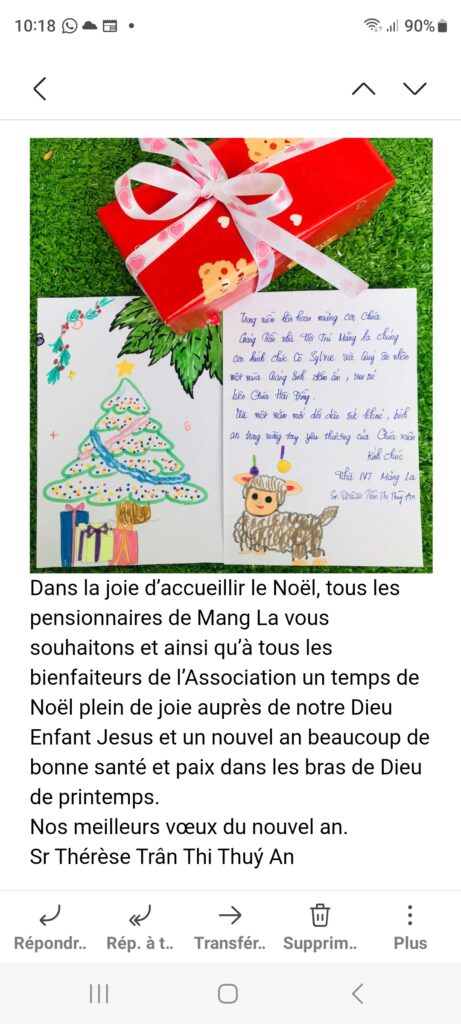 10:18
90%
Trong niềm hân hoan mừng con Chúa
Giáng Trần nhà Nội Trú Măng la chúng
con kính chúc Cô Sylvie và Quý ân nhân
một mùa Giáng Sinh chan ân, vui vẻ
bên Chúa Hài Đồng.
Và một năm mới dồi dào sức khoẻ, bình
an trong vòng tay yêu thương của Chúa xuân
Kính chúc
Nhà NT Măng La
Sr Têrêsa Trần Thị Thuý An
Dans la joie d’accueillir le Noël, tous les
pensionnaires de Mang La vous
souhaitons et ainsi qu’à tous les
bienfaiteurs de l’Association un temps de
Noël plein de joie auprès de notre Dieu
Enfant Jesus et un nouvel an beaucoup de
bonne santé et paix dans les bras de Dieu
de printemps.
Nos meilleurs vœux du nouvel an.
Sr Thérèse Trân Thi Thuý An
Répondr.. Rép. à t.. Transfér.. Supprim.. Plus